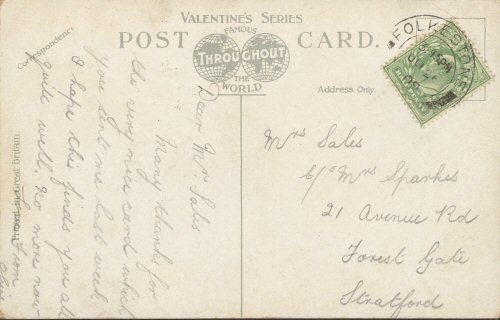 VALENTINE'S SERIES
POST CARD.
FAMOUS
THROUGHOUT
THE WORLD
Correspondency
Address Only.
FOLKESTONE
Dear Mrs Sales
Many thanks for
the very nice card which
you sent me last week
I hope this finds you all
quite well. No more now
from
Mrs Sales
c/o Mrs Sparkes
21 Avenue Rd
Forest Gate
Stratford
Great Britain